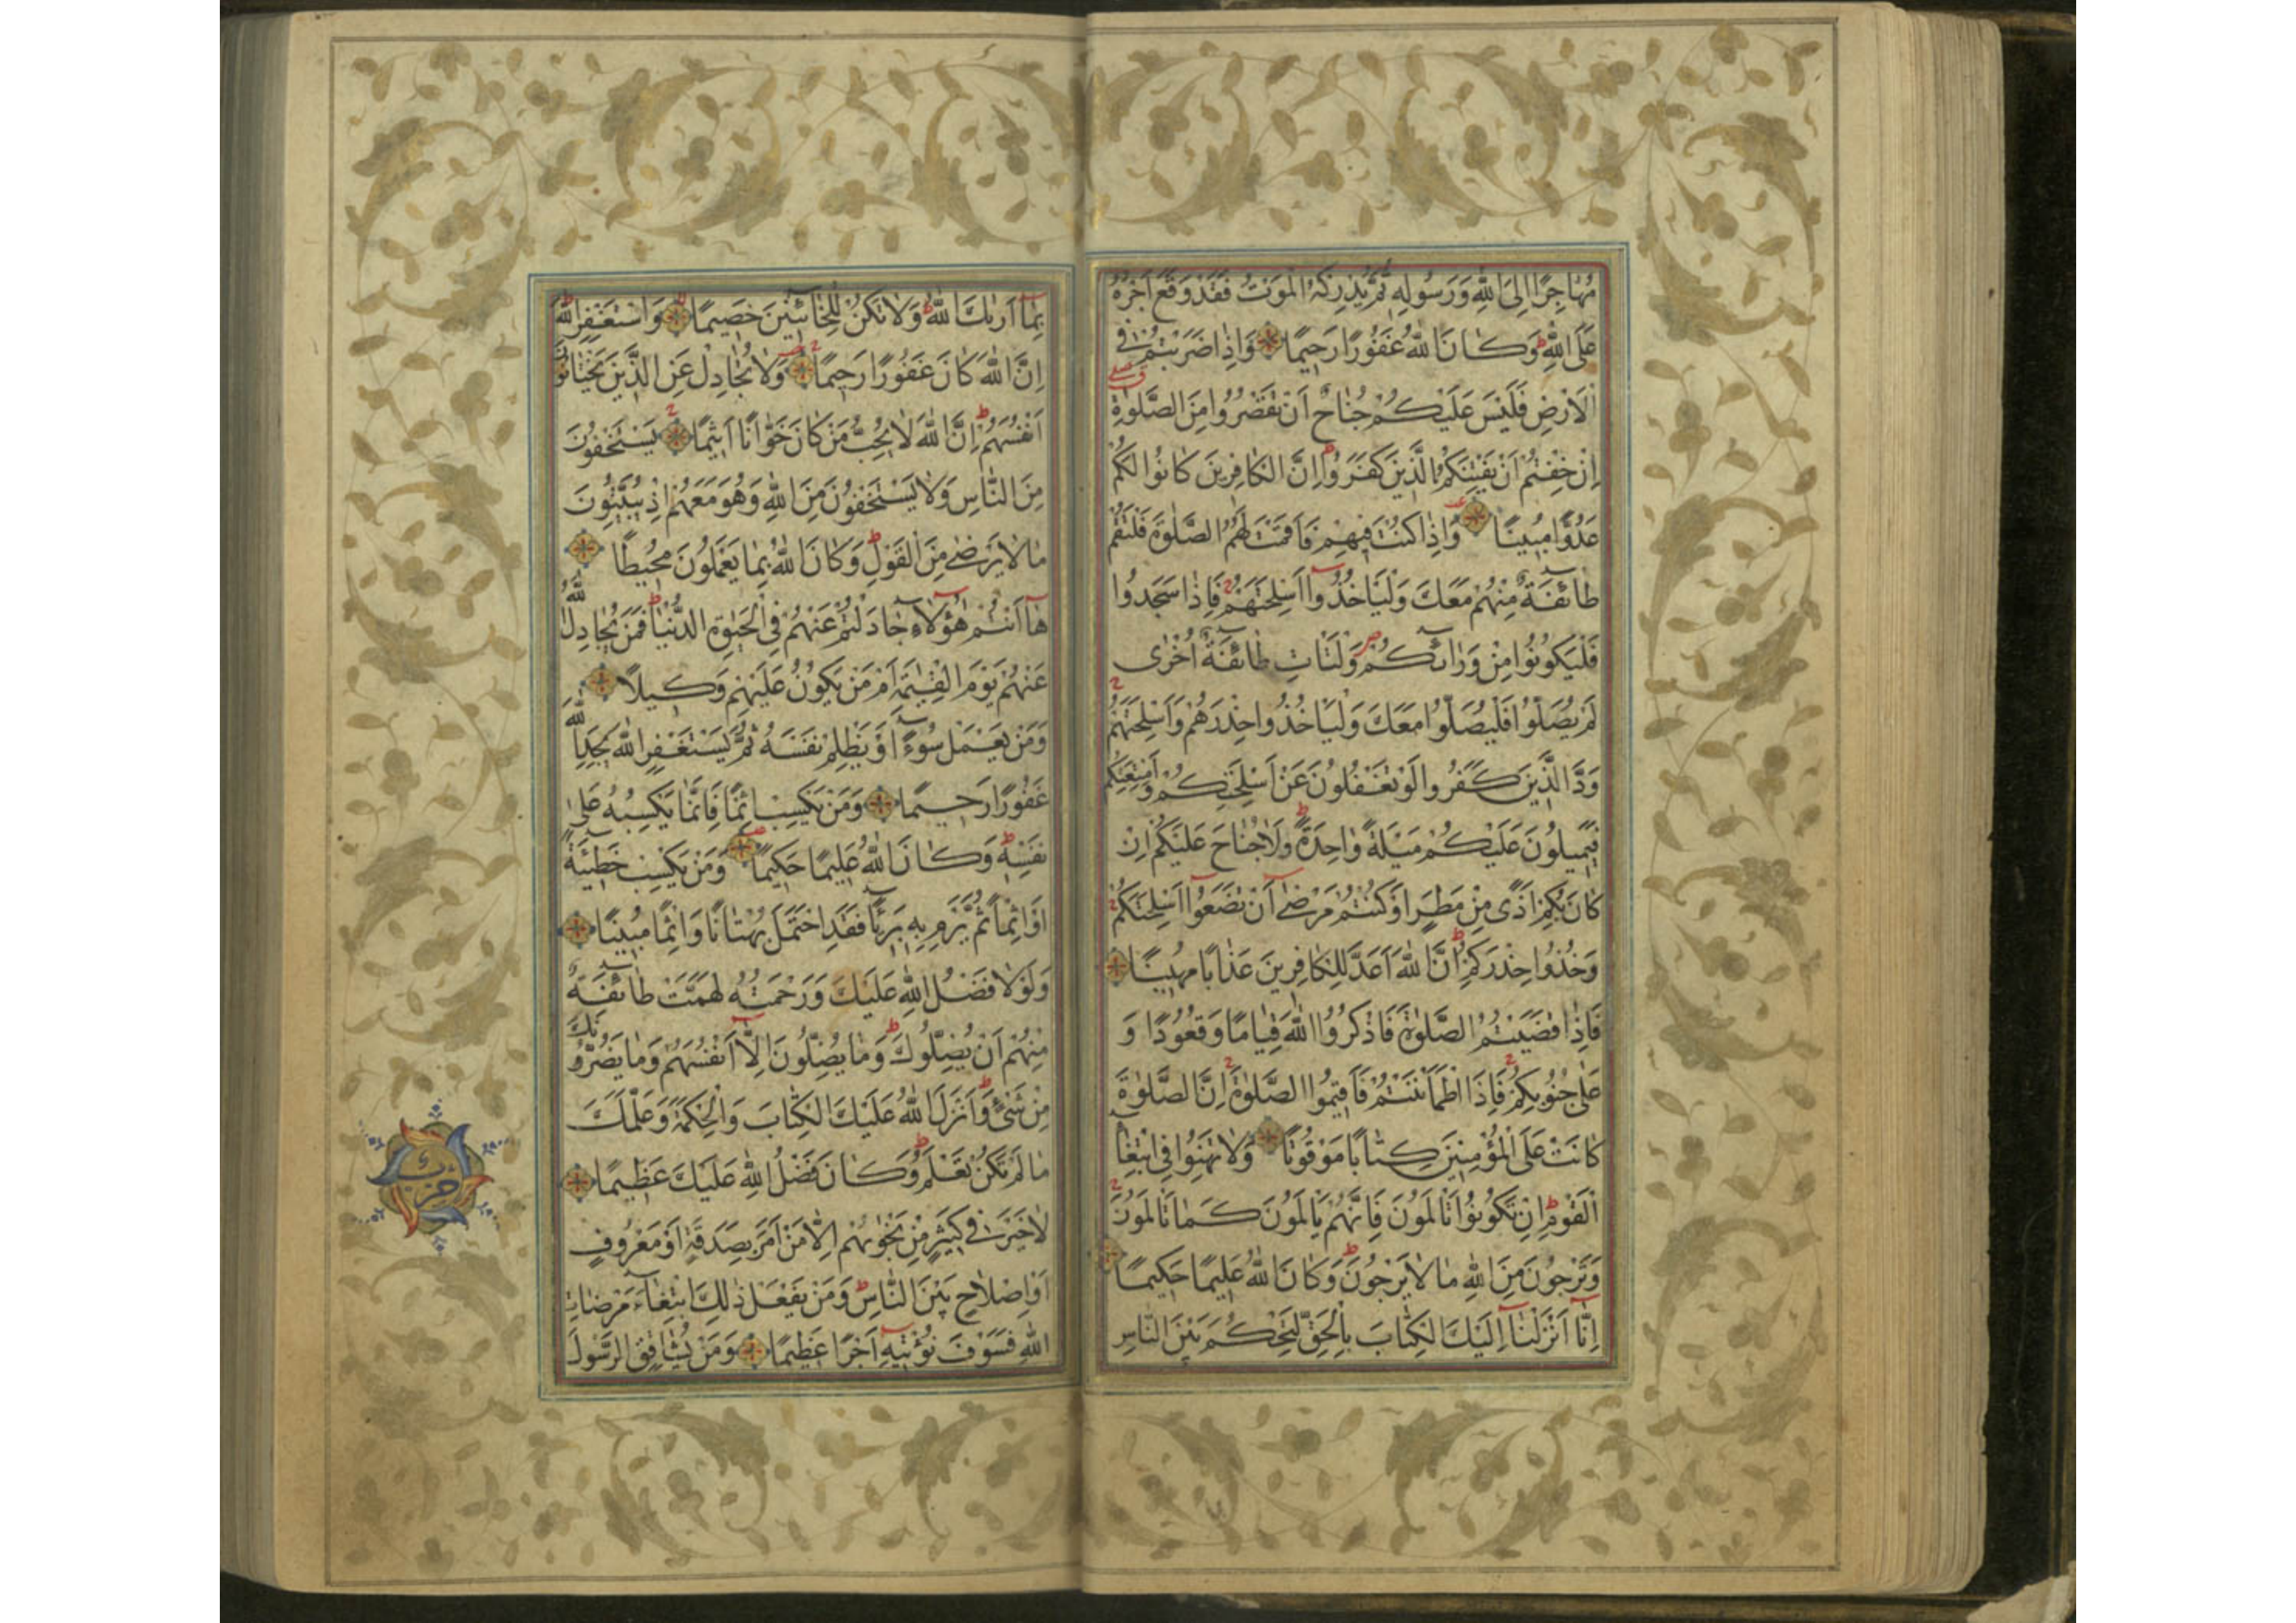 مُهَاجِرًا اِلَى اللّٰهِ وَرَسُولِهِ ثُمَّ يُدْرِكْهُ الْمَوْتُ فَقَدْ وَقَعَ اَجْرُهُ
عَلَى اللّٰهِ ط وَكَانَ اللّٰهُ غَفُورًا رَحِيمًا وَاِذَا ضَرَبْتُمْ فِي
الْاَرْضِ فَلَيْسَ عَلَيْكُمْ جُنَاحٌ اَنْ تَقْصُرُوا مِنَ الصَّلٰوةِ
اِنْ خِفْتُمْ اَنْ يَفْتِنَكُمُ الَّذِينَ كَفَرُوا ط اِنَّ الْكَافِرِينَ كَانُوا لَكُمْ
عَدُوًّا مُبِينًا وَاِذَا كُنْتَ فِيهِمْ فَاَقَمْتَ لَهُمُ الصَّلٰوةَ فَلْتَقُمْ
طَائِفَةٌ مِنْهُمْ مَعَكَ وَلْيَاْخُذُوا اَسْلِحَتَهُمْ فَاِذَا سَجَدُوا
فَلْيَكُونُوا مِنْ وَرَائِكُمْ ص وَلْتَاْتِ طَائِفَةٌ اُخْرٰى
لَمْ يُصَلُّوا فَلْيُصَلُّوا مَعَكَ وَلْيَاْخُذُوا حِذْرَهُمْ وَاَسْلِحَتَهُمْ
وَدَّ الَّذِينَ كَفَرُوا لَوْ تَغْفُلُونَ عَنْ اَسْلِحَتِكُمْ وَاَمْتِعَتِكُمْ
فَيَمِيلُونَ عَلَيْكُمْ مَيْلَةً وَاحِدَةً ط وَلَا جُنَاحَ عَلَيْكُمْ اِنْ
كَانَ بِكُمْ اَذًى مِنْ مَطَرٍ اَوْ كُنْتُمْ مَرْضٰى اَنْ تَضَعُوا اَسْلِحَتَكُمْ
وَخُذُوا حِذْرَكُمْ ط اِنَّ اللّٰهَ اَعَدَّ لِلْكَافِرِينَ عَذَابًا مُهِينًا
فَاِذَا قَضَيْتُمُ الصَّلٰوةَ فَاذْكُرُوا اللّٰهَ قِيَامًا وَقُعُودًا وَ
عَلٰى جُنُوبِكُمْ فَاِذَا اطْمَاْنَنْتُمْ فَاَقِيمُوا الصَّلٰوةَ اِنَّ الصَّلٰوةَ
كَانَتْ عَلَى الْمُؤْمِنِينَ كِتَابًا مَوْقُوتًا وَلَا تَهِنُوا فِي ابْتِغَاءِ
الْقَوْمِ ط اِنْ تَكُونُوا تَاْلَمُونَ فَاِنَّهُمْ يَاْلَمُونَ كَمَا تَاْلَمُونَ
وَتَرْجُونَ مِنَ اللّٰهِ مَا لَا يَرْجُونَ ط وَكَانَ اللّٰهُ عَلِيمًا حَكِيمًا
اِنَّا اَنْزَلْنَا اِلَيْكَ الْكِتَابَ بِالْحَقِّ لِتَحْكُمَ بَيْنَ النَّاسِ
بِمَا اَرٰيكَ اللّٰهُ ط وَلَا تَكُنْ لِلْخَائِنِينَ خَصِيمًا وَاسْتَغْفِرِ اللّٰهَ
اِنَّ اللّٰهَ كَانَ غَفُورًا رَحِيمًا وَلَا تُجَادِلْ عَنِ الَّذِينَ يَخْتَانُونَ
اَنْفُسَهُمْ ط اِنَّ اللّٰهَ لَا يُحِبُّ مَنْ كَانَ خَوَّانًا اَثِيمًا يَسْتَخْفُونَ
مِنَ النَّاسِ وَلَا يَسْتَخْفُونَ مِنَ اللّٰهِ وَهُوَ مَعَهُمْ اِذْ يُبَيِّتُونَ
مَا لَا يَرْضٰى مِنَ الْقَوْلِ ط وَكَانَ اللّٰهُ بِمَا يَعْمَلُونَ مُحِيطًا
هَا اَنْتُمْ هٰؤُلَاءِ جَادَلْتُمْ عَنْهُمْ فِي الْحَيٰوةِ الدُّنْيَا فَمَنْ يُجَادِلُ اللّٰهَ
عَنْهُمْ يَوْمَ الْقِيٰمَةِ اَمْ مَنْ يَكُونُ عَلَيْهِمْ وَكِيلًا
وَمَنْ يَعْمَلْ سُوءًا اَوْ يَظْلِمْ نَفْسَهُ ثُمَّ يَسْتَغْفِرِ اللّٰهَ يَجِدِ اللّٰهَ
غَفُورًا رَحِيمًا وَمَنْ يَكْسِبْ اِثْمًا فَاِنَّمَا يَكْسِبُهُ عَلٰى
نَفْسِهِ ط وَكَانَ اللّٰهُ عَلِيمًا حَكِيمًا وَمَنْ يَكْسِبْ خَطِيئَةً
اَوْ اِثْمًا ثُمَّ يَرْمِ بِهِ بَرِيئًا فَقَدِ احْتَمَلَ بُهْتَانًا وَاِثْمًا مُبِينًا
وَلَوْلَا فَضْلُ اللّٰهِ عَلَيْكَ وَرَحْمَتُهُ لَهَمَّتْ طَائِفَةٌ
مِنْهُمْ اَنْ يُضِلُّوكَ ط وَمَا يُضِلُّونَ اِلَّا اَنْفُسَهُمْ وَمَا يَضُرُّونَكَ
مِنْ شَيْءٍ ط وَاَنْزَلَ اللّٰهُ عَلَيْكَ الْكِتَابَ وَالْحِكْمَةَ وَعَلَّمَكَ
مَا لَمْ تَكُنْ تَعْلَمُ ط وَكَانَ فَضْلُ اللّٰهِ عَلَيْكَ عَظِيمًا
لَا خَيْرَ فِي كَثِيرٍ مِنْ نَجْوٰيهُمْ اِلَّا مَنْ اَمَرَ بِصَدَقَةٍ اَوْ مَعْرُوفٍ
اَوْ اِصْلَاحٍ بَيْنَ النَّاسِ ط وَمَنْ يَفْعَلْ ذٰلِكَ ابْتِغَاءَ مَرْضَاتِ
اللّٰهِ فَسَوْفَ نُؤْتِيهِ اَجْرًا عَظِيمًا وَمَنْ يُشَاقِقِ الرَّسُولَ
حزب